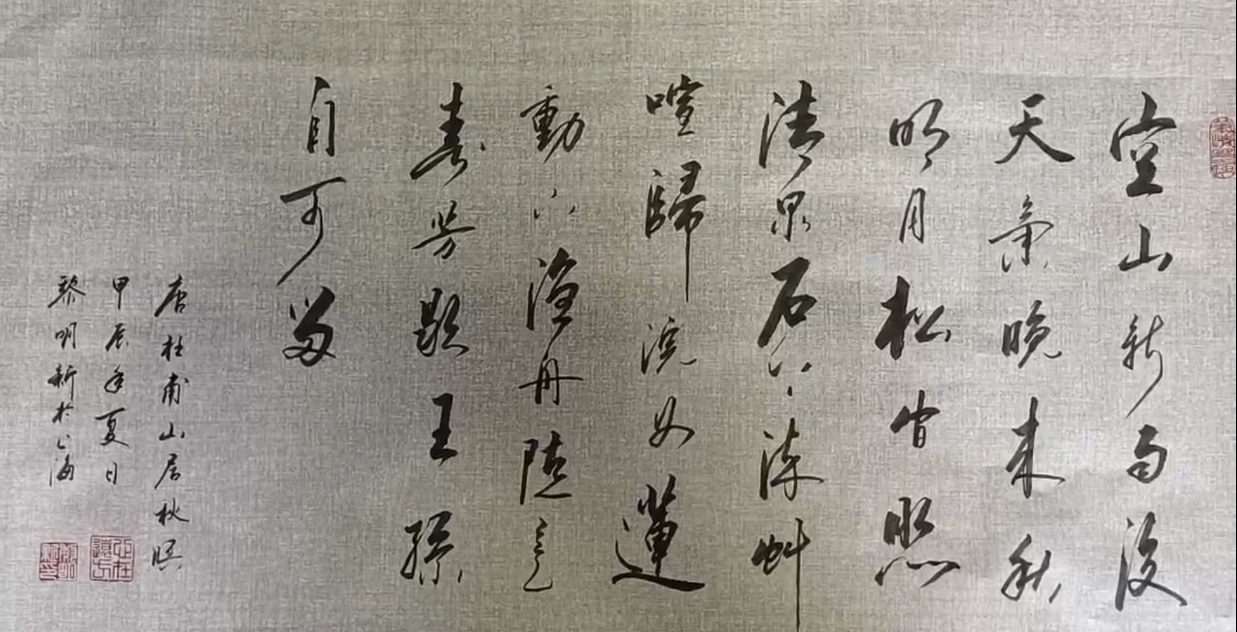 空山新雨後
天氣晚来秋
明月松间照
清泉石上流竹
喧歸浣女蓮
動下漁舟隨意
春芳歇王孫
自可留
唐杜甫山居秋暝
甲辰年夏日
黎明新於上海